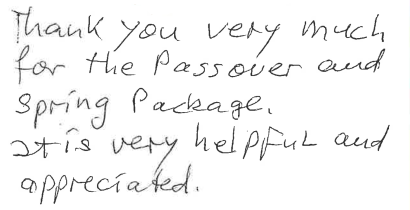 Thank you very much
for the Passover and
Spring Package.
It is very helpful and
appreciated.